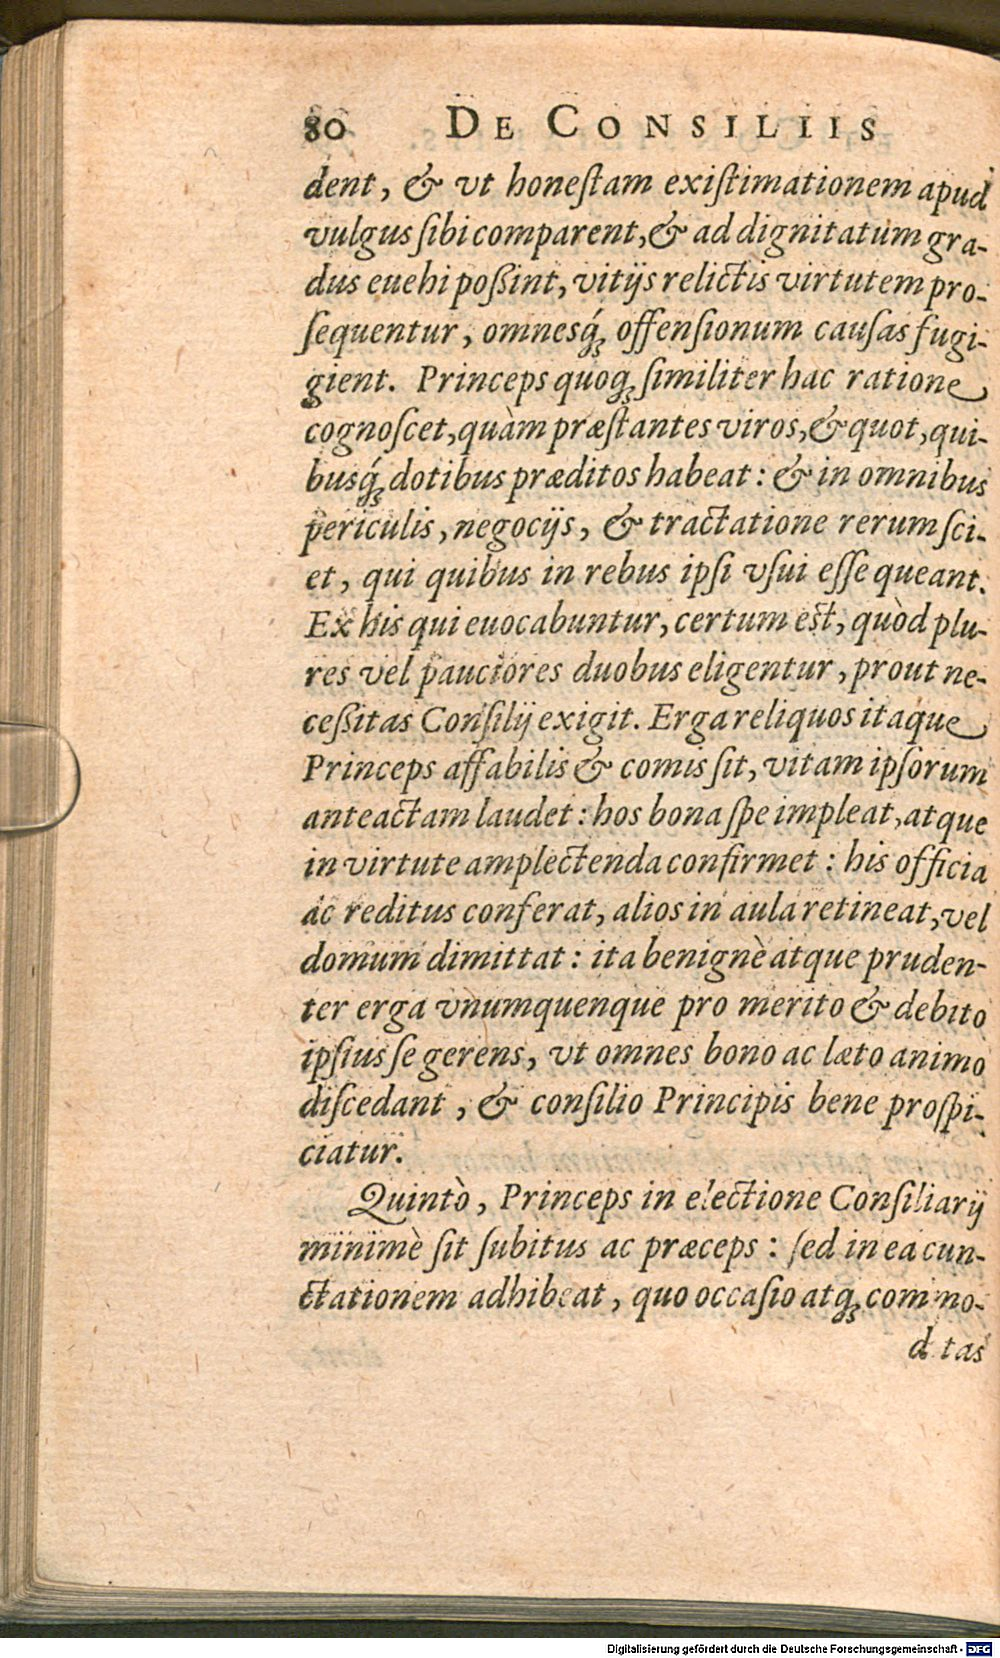 80 DE CONSILIIS
dent, & vt honeſtam exiſtimationem apud
vulgus ſibi comparent, & ad dignitatum gra-
dus euehi poßint, vitijs relictis virtutem pro-
ſequentur, omnesq́; offenſionum cauſas fugi-
gient. Princeps quoq; ſimiliter hac ratione
cognoſcet, quàm præſtantes viros, & quot, qui-
busq́; dotibus præditos habeat: & in omnibus
periculis, negocijs, & tractatione rerum ſci-
et, qui quibus in rebus ipſi vſui eſſe queant.
Ex his qui euocabuntur, certum est, quòd plu-
res vel pauciores duobus eligentur, prout ne-
ceßitas Conſilij exigit. Erga reliquos itaque
Princeps affabilis & comis ſit, vitam ipſorum
anteactam laudet: hos bona ſpe impleat, atque
in virtute amplectenda confirmet: his officia
ac reditus conferat, alios in aula retineat, vel
domum dimittat: ita benignè atque pruden-
ter erga vnumquenque pro merito & debito
ipſius ſe gerens, vt omnes bono ac læto animo
diſcedant, & conſilio Principis bene proſpi-
ciatur.
Quintò, Princeps in electione Conſiliarij
minimè ſit ſubitus ac præceps: ſed in ea cun-
ctationem adhibeat, quo occaſio atq; commo-
d tas
Digitalisierung gefördert durch die Deutsche Forschungsgemeinschaft - DFG